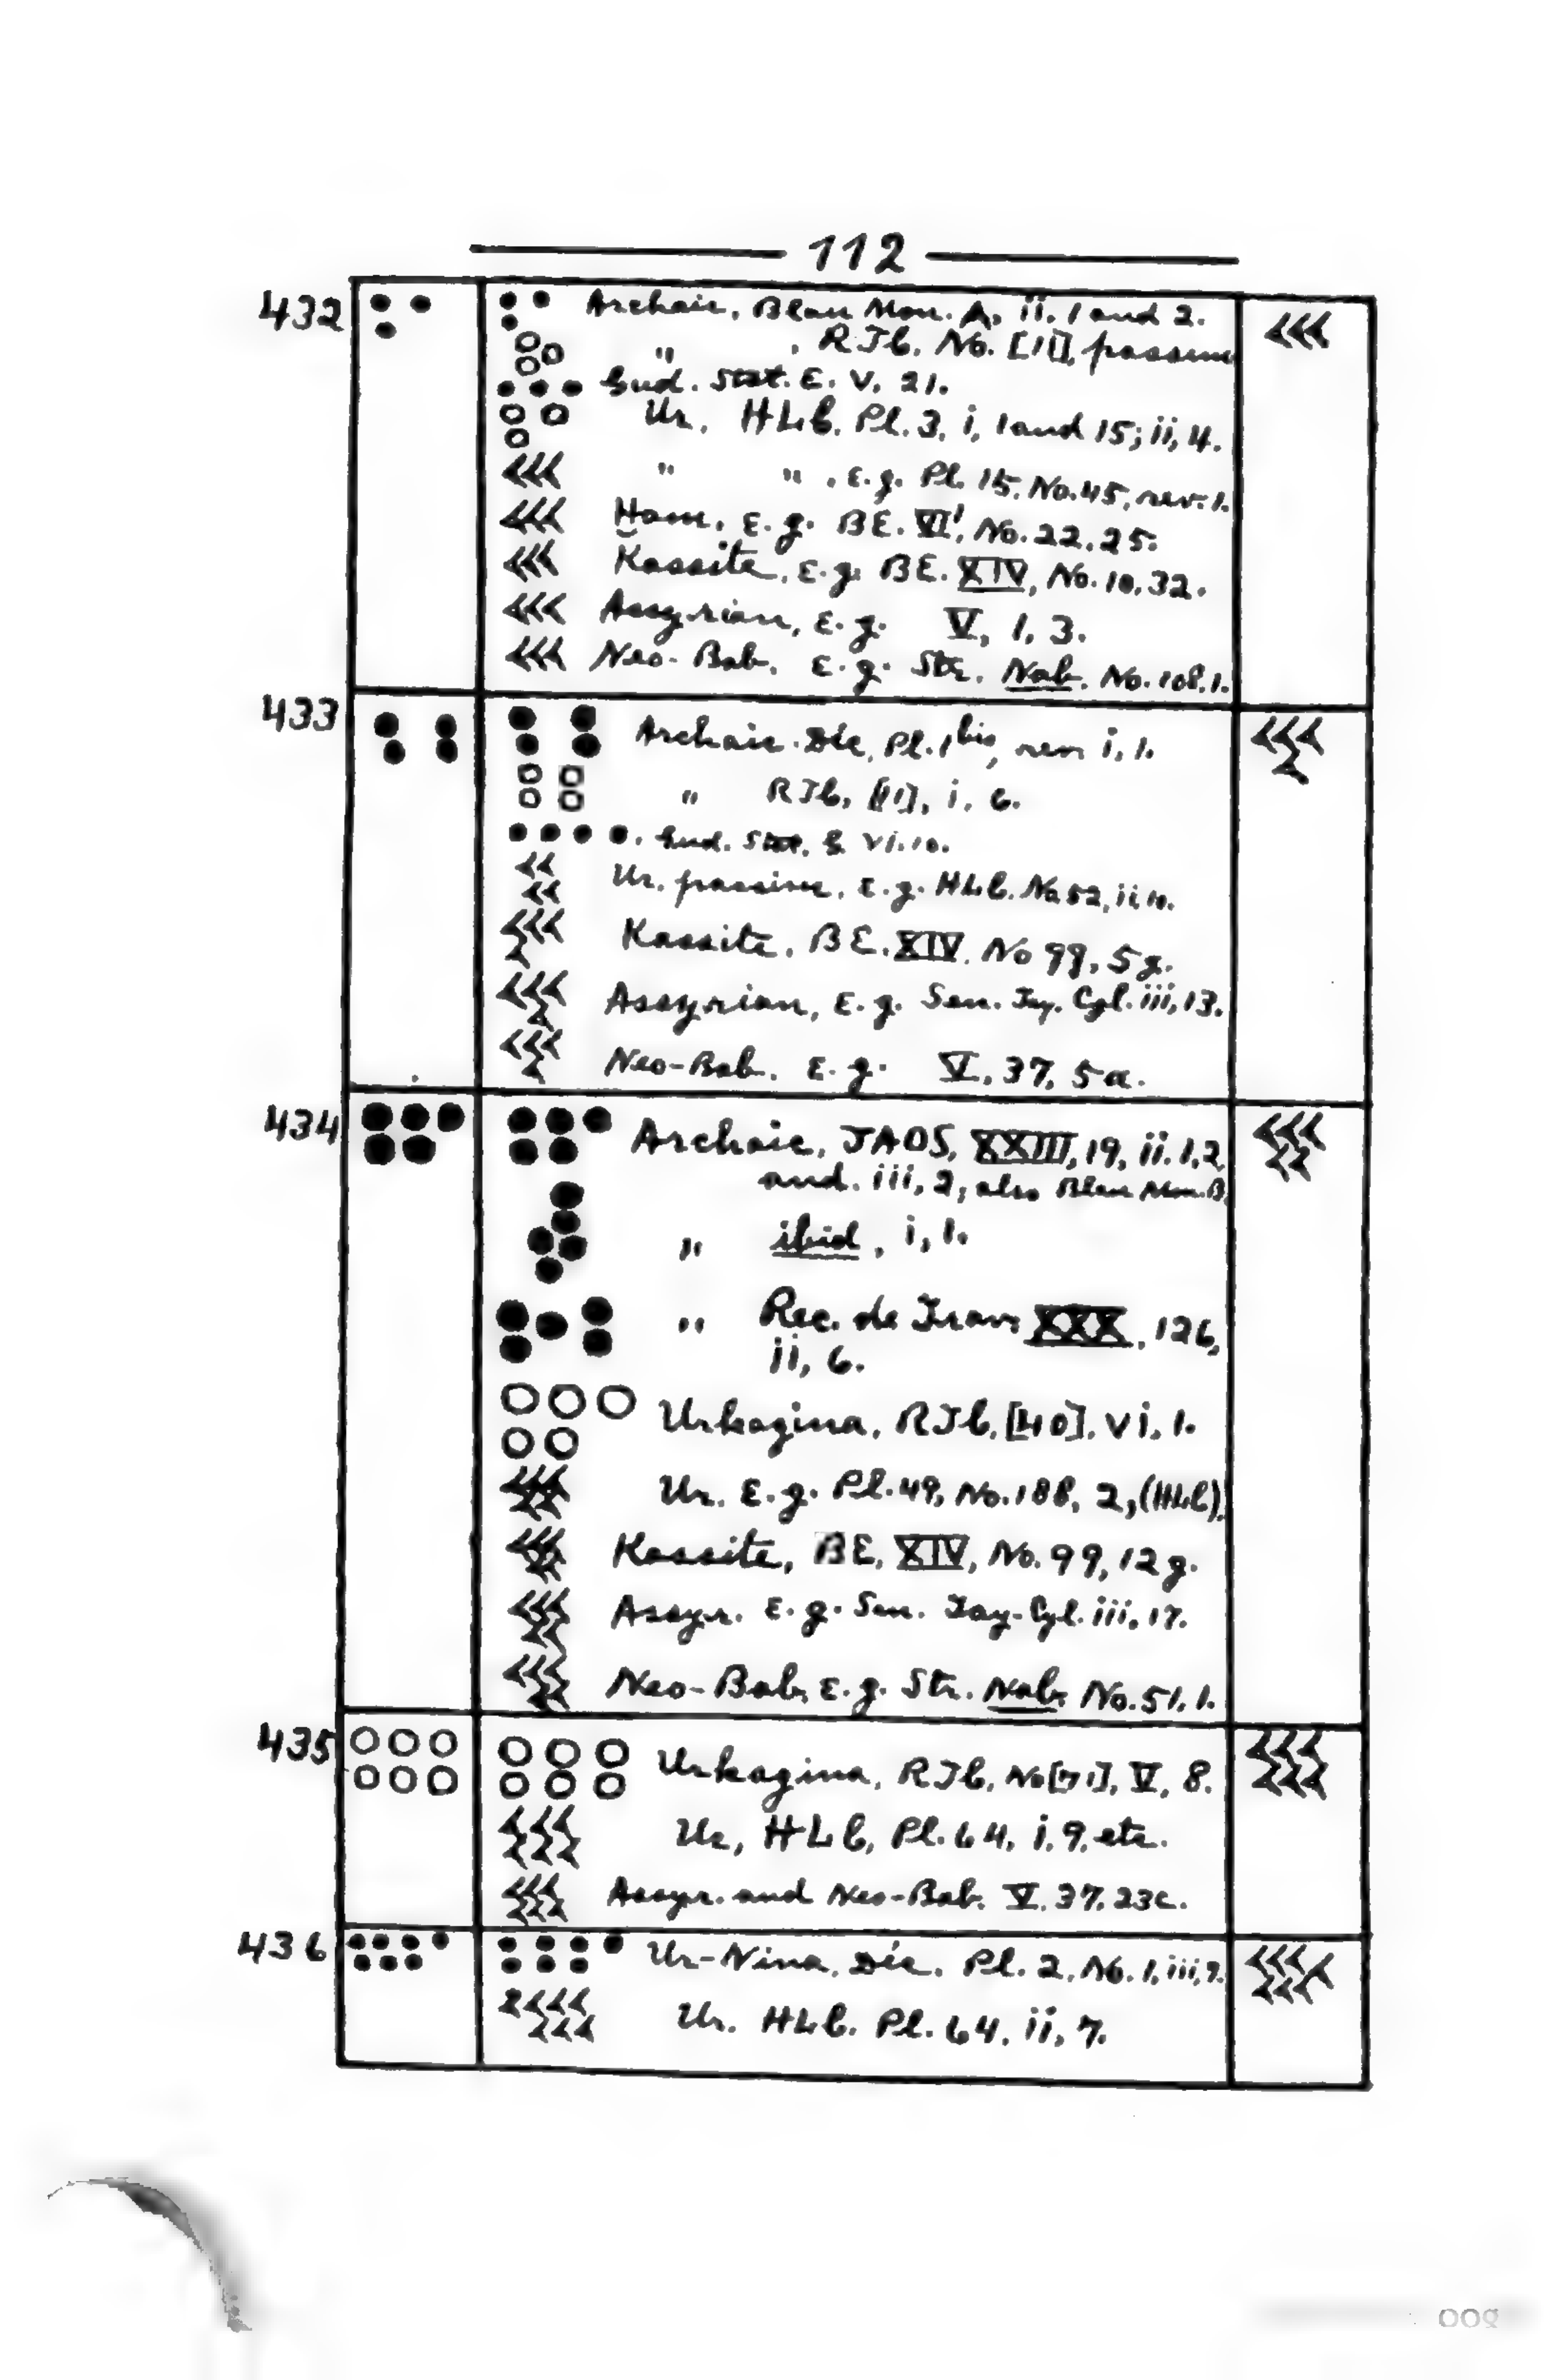 112
432
Archaic, Blau Mon. A, ii. 1 and 2.
" , RTC, No. [11], passim
Gud. Stat. E. V, 21.
Ur, HLC, Pl. 3, i, 1 and 15; ii, 4.
" " , e.g. Pl. 15, No. 45, rev. 1.
Ḫam, e.g. BE. VI¹, No. 22, 25.
Kassite, e.g. BE. XIV, No. 10, 32.
Assyrian, e.g. V, 1, 3.
Neo-Bab. e.g. Str. Nab. No. 108, 1.
433
Archaic. Déc, Pl. 1bis, rev i, 1.
" RTC, [11], i, 6.
Gud. Stat. G. vi. 10.
Ur. passim, e.g. HLC. No 52, ii, 10.
Kassite, BE. XIV. No 99, 5g.
Assyrian, e.g. Sen. Tay. Cyl. iii, 13.
Neo-Bab. e.g. V, 37, 5a.
434
Archaic, JAOS, XXIII, 19, ii. 1, 2
and. iii, 2, also Blau Mon. B.
" ibid, i, 1.
" Rec. de Trav. XXX, 126,
ii, 6.
Urkagina, RTC, [40], vi, 1.
Ur. e.g. Pl. 49, No. 188, 2, (HLC).
Kassite, BE, XIV, No. 99, 12g.
Assyr. e.g. Sen. Tay-Cyl. iii, 17.
Neo-Bab, e.g. Str. Nab. No. 51, 1.
435
Urkagina, RTC, No [71], V, 8.
Ur, HLC, Pl. 64, i, 9, etc.
Assyr. and Neo-Bab. V, 37, 23c.
436
Ur-Nina, Déc. Pl. 2, No. 1, iii, 7.
Ur. HLC. Pl. 64, ii, 7.